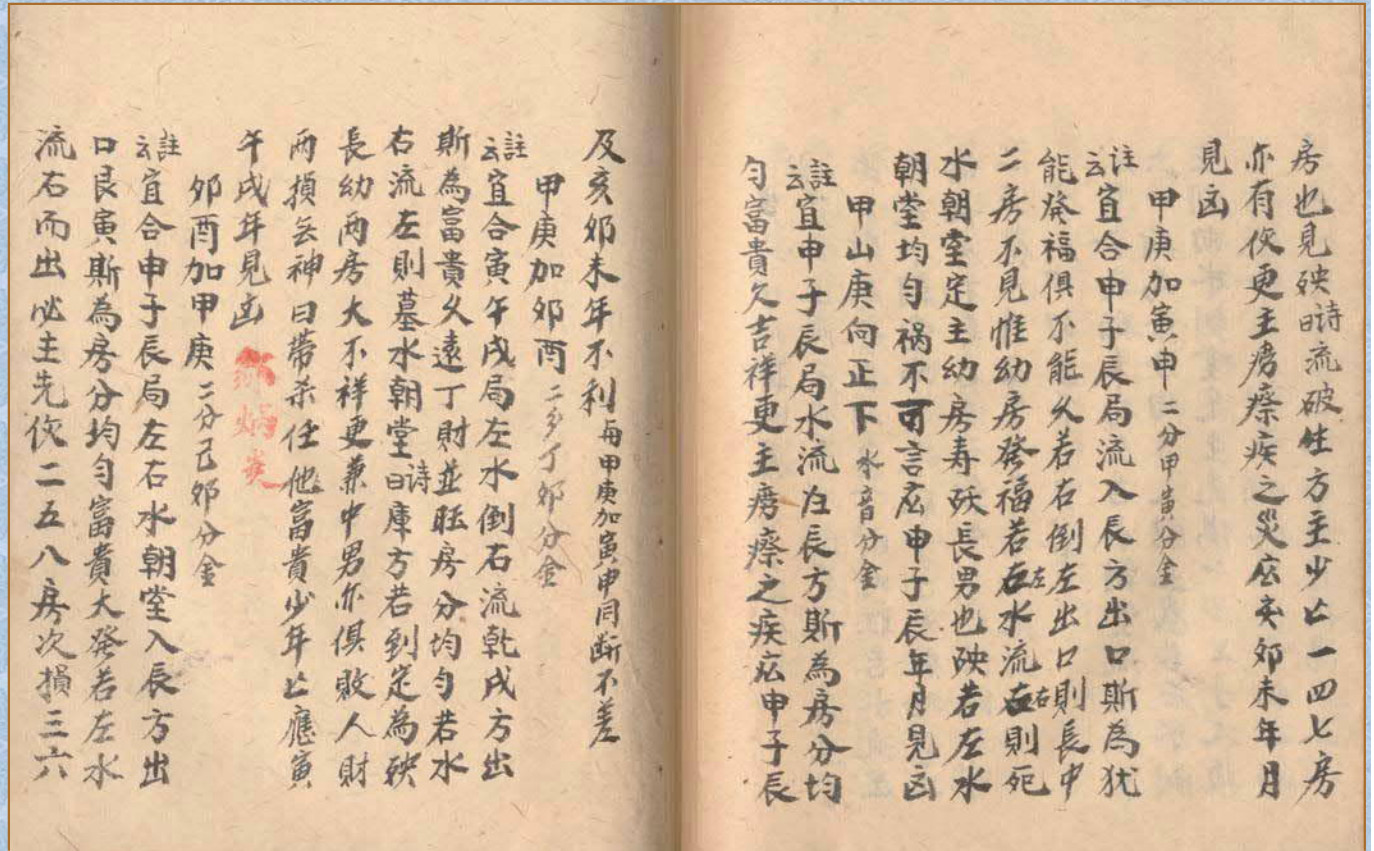 房也見殃詩曰流破生方主少亡一四七房
亦有伖更主癆瘵疾之災应亥卯未年月
見凶
甲庚加寅申二分甲寅分金
註云宜合申子辰局流入辰方出口斯為犹
能発福俱不能久若右倒左出口則長中
二房不見惟幼房発福若左水流右則死
水朝堂定主幼房寿殀長男也殃若左水
朝堂均匀祸不可言应申子辰年月見凶
甲山庚向正下水音分金
註云宜申子辰局水流左辰方斯為房分均
匀富貴久吉祥更主癆瘵之疾应申子辰
及亥卯未年不利與甲庚加寅申同断不差
甲庚加卯酉二分丁卯分金
註云宜合寅午戌局左水倒右流乾戌方出
斯為富貴久遠丁財並旺房分均匀若水
右流左則墓水朝堂詩曰庫方若到定為殃
長幼兩房大不祥更兼中男亦俱敗人財
兩損去神曰帶杀任他富貴少年亡應寅
午戌年見凶
卯酉加甲庚二分己卯分金
註云宜合申子辰局左右水朝堂入辰方出
口艮寅斯為房分均匀富貴大発若左水
流右而出必主先伖二五八房次損三六